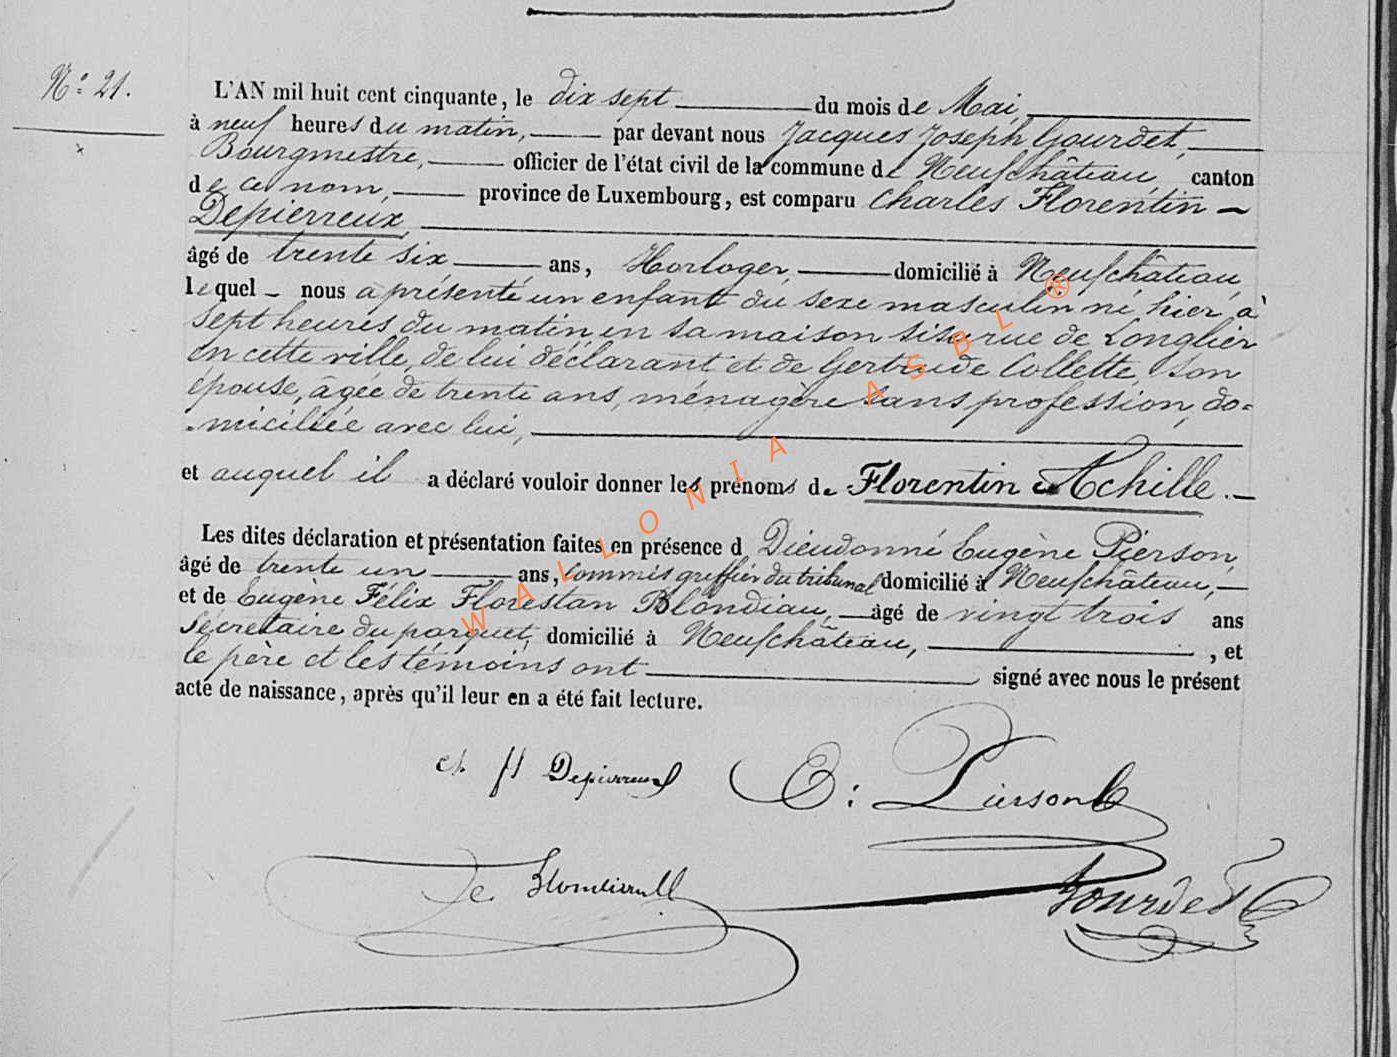 N.º 21.
L'AN mil huit cent cinquante, le dix sept du mois de Mai,
à neuf heures du matin, par devant nous Jacques Joseph Gourdet,
Bourgmestre, officier de l'état civil de la commune de Neufchâteau, canton
de ce nom, province de Luxembourg, est comparu Charles Florentin
Depierreux,
âgé de trente six ans, Horloger, domicilié à Neufchâteau,
lequel nous a présenté un enfant du sexe masculin né hier, à
sept heures du matin en sa maison sise rue de Longlier
en cette ville, de lui déclarant et de Gertrude Collette, son
épouse, âgée de trente ans, ménagère sans profession, do=
miciliée avec lui,
et auquel il a déclaré vouloir donner les prénoms de Florentin Achille.
Les dites déclaration et présentation faites en présence d Dieudonné Eugène Pierson,
âgé de trente un ans, commis greffier du tribunal domicilié à Neufchâteau,
et de Eugène Félix Florestan Blondiau, âgé de vingt trois ans
Sécretaire du parquet, domicilié à Neufchâteau, , et
le père et les témoins ont signé avec nous le présent
acte de naissance, après qu'il leur en a été fait lecture.
WALLONIA ASBL ®
ch ff Depierreux E: Pierson
Gourdet